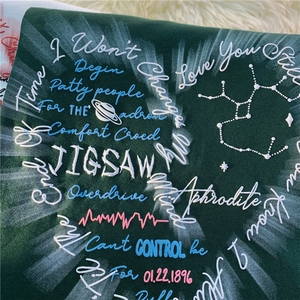 I Won't Change My Mind
Love You Still
Degin
Patty people
For THE adron
Comfort Croed
JIGSAW
Overdrive
Aphrodite
Can't CONTROL be
For 01.22.1896
End Of Time
You Know I